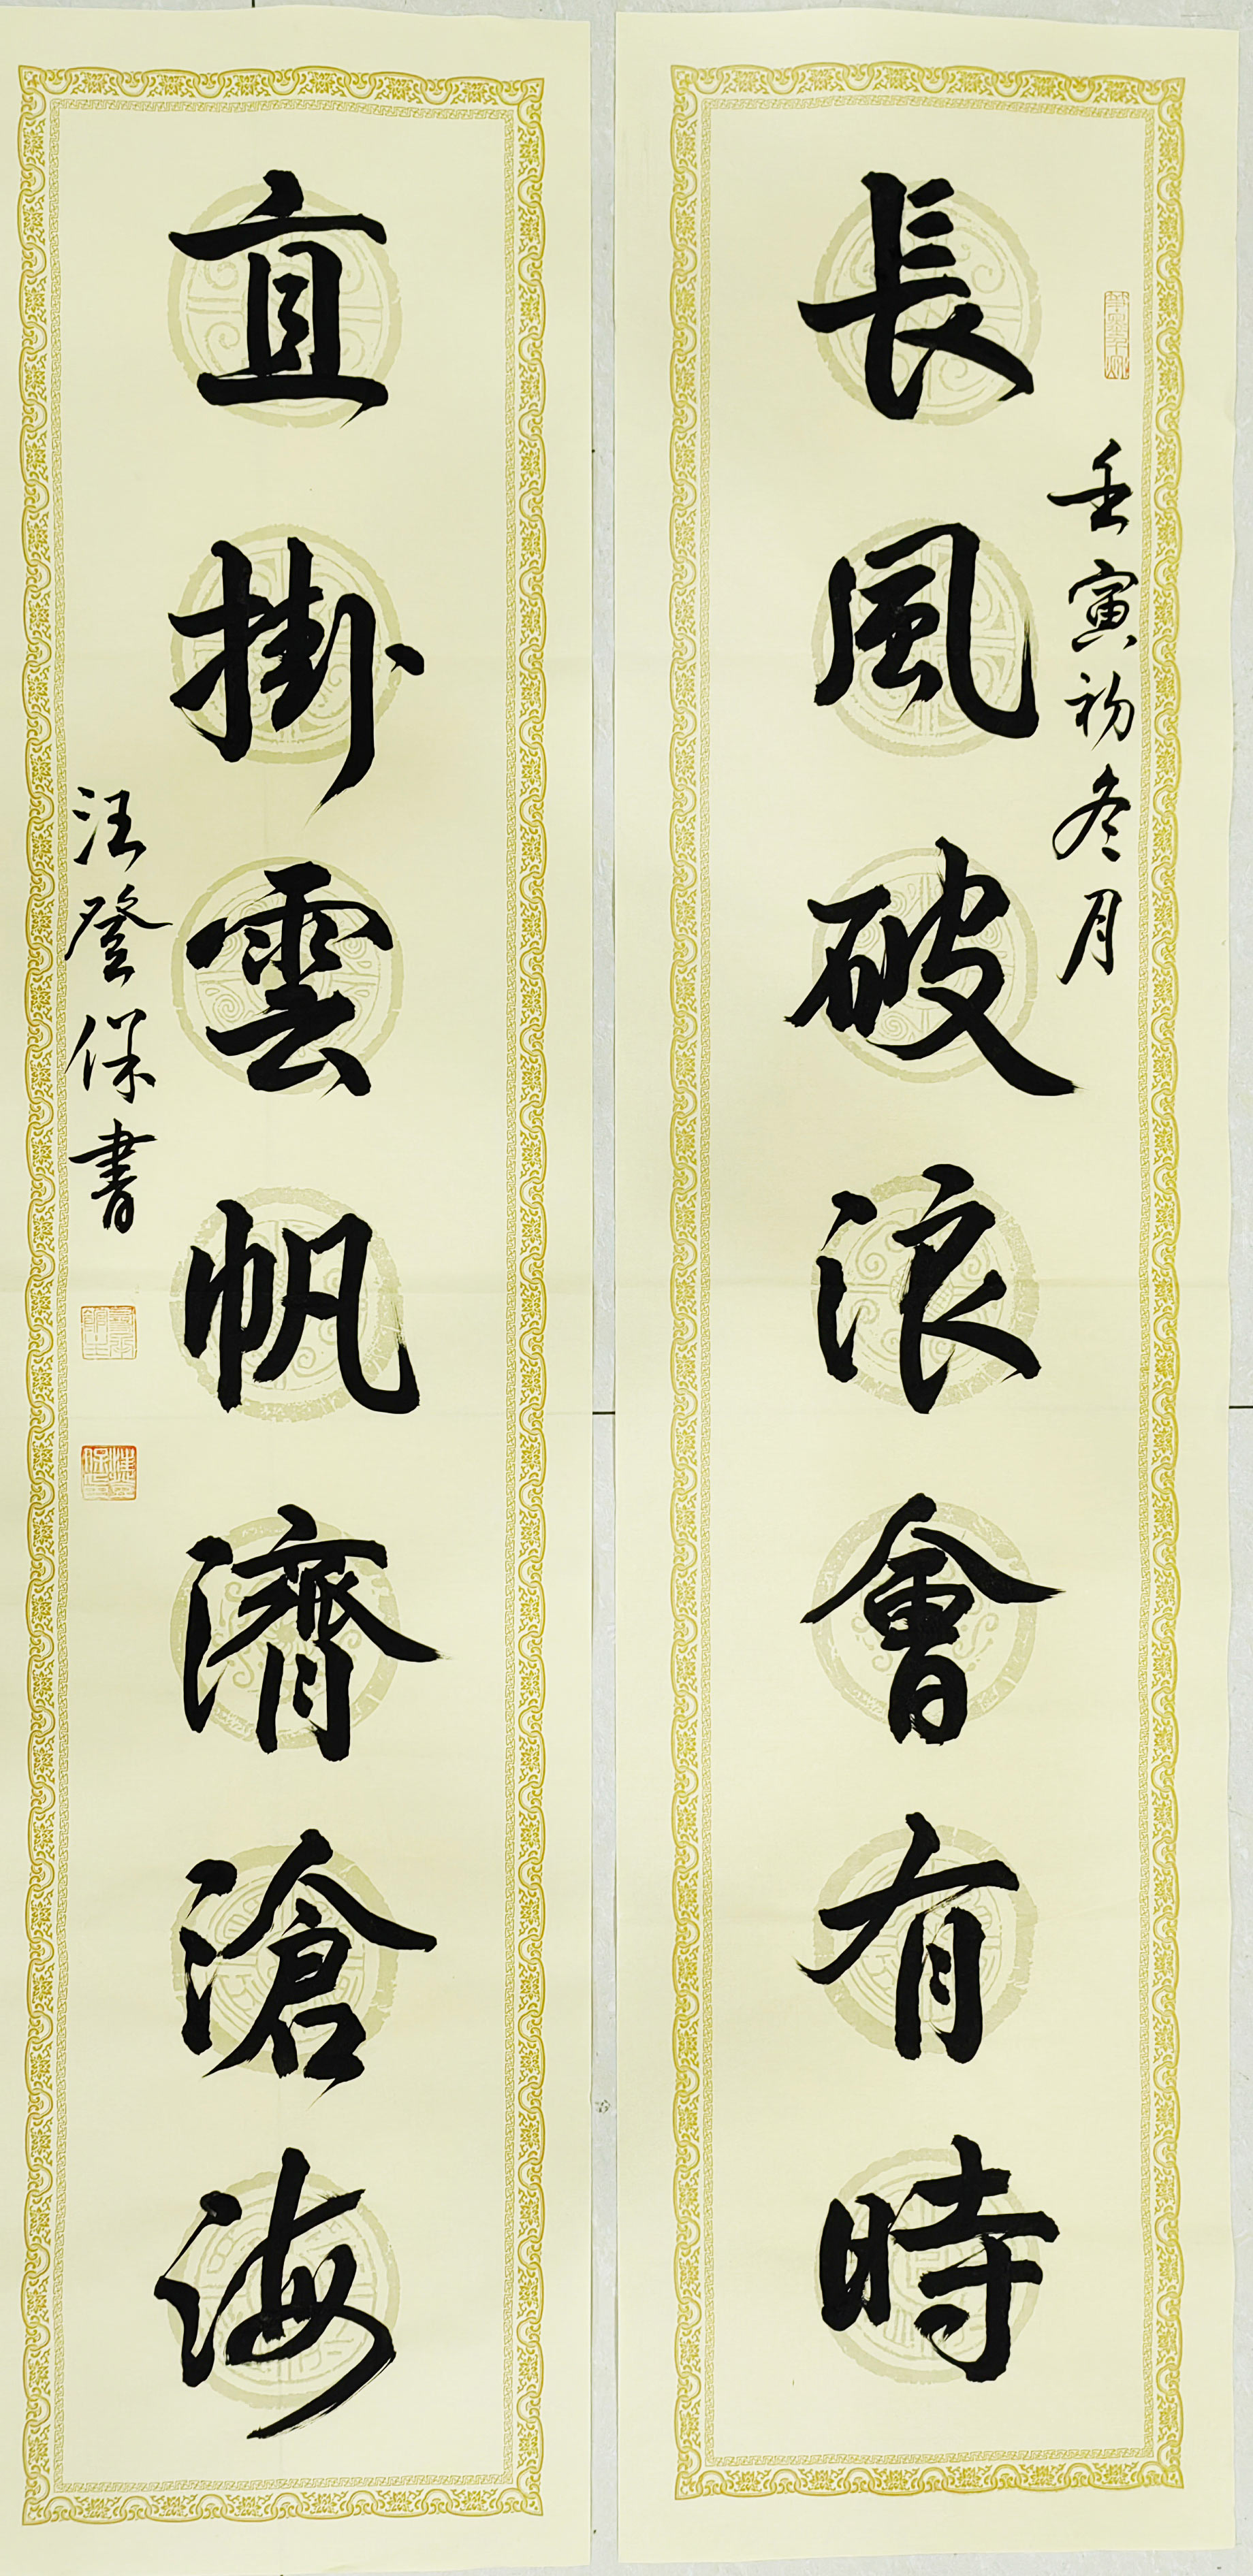 壬寅初冬月
長風破浪會有時
直掛雲帆濟滄海
汪登保書